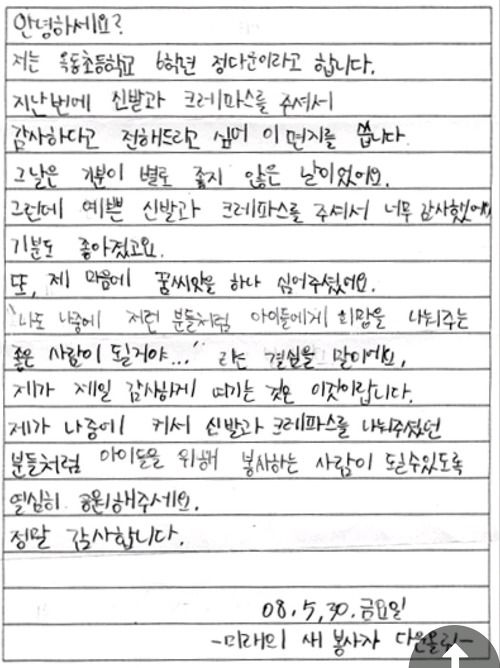 안녕하세요?
저는 옥동초등학교 6학년 정다운이라고 합니다.
지난번에 신발과 크레파스를 주셔서
감사하다고 전해드리고 싶어 이 편지를 씁니다.
그날은 기분이 별로 좋지 않은 날이었어요.
그런데 예쁜 신발과 크레파스를 주셔서 너무 감사했어요
기분도 좋아졌고요.
또, 제 마음에 꿈씨앗을 하나 심어주셨어요.
'나도 나중에 저런 분들처럼 아이들에게 희망을 나눠주는
좋은 사람이 될거야...' 라는 결심을 말이에요.
제가 제일 감사하게 여기는 것은 이것이랍니다.
제가 나중에 커서 신발과 크레파스를 나눠주셨던
분들처럼 아이들을 위해 봉사하는 사람이 될수있도록
열심히 응원해주세요.
정말 감사합니다.
08.5.30.금요일
-미래의 새 봉사자 다운올림-